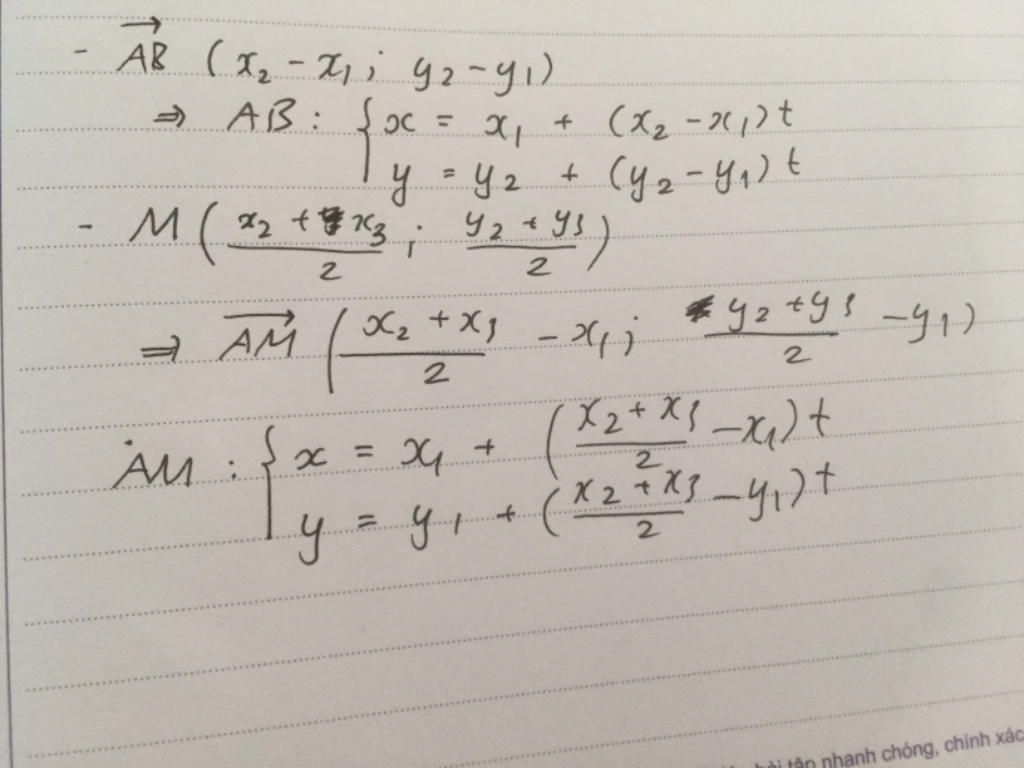 - \overrightarrow{AB} (x₂ - x₁ ; y₂ - y₁)
⇒ AB : { x = x₁ + (x₂ - x₁) t
y = y₂ + (y₂ - y₁) t
- M ( \frac{x₂ + x₃}{2} ; \frac{y₂ + y₃}{2} )
⇒ \overrightarrow{AM} ( \frac{x₂ + x₃}{2} - x₁ ; \frac{y₂ + y₃}{2} - y₁ )
AM : { x = x₁ + ( \frac{x₂ + x₃}{2} - x₁ ) t
y = y₁ + ( \frac{x₂ + x₃}{2} - y₁ ) t
bài tập nhanh chóng, chính xác